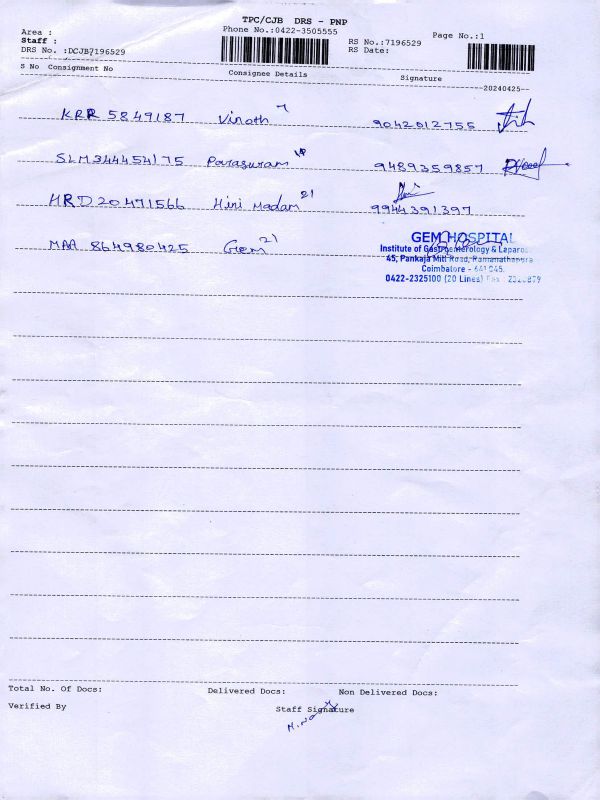 TPC/CJB DRS - PNP
Area :
Phone No.:0422-3505555
Staff :
RS No.:7196529
Page No.:1
DRS No. :DCJB7196529
RS Date:
S No Consignment No Consignee Details Signature
--20240425--
KRR 5849187 Vinoth 7 9042012755
SLM344454175 Parasuram 9489359857
HRD20471566 Mini Madam 21 9944391397
MAA 864980425 Gem 21
GEM HOSPITAL
Institute of Gastroenterology & Laparos
45, Pankaja Mill Road, Ramanathapura
Coimbatore - 641 045.
0422-2325100 (20 Lines) Fax :
Total No. Of Docs: Delivered Docs: Non Delivered Docs:
Verified By Staff Signature